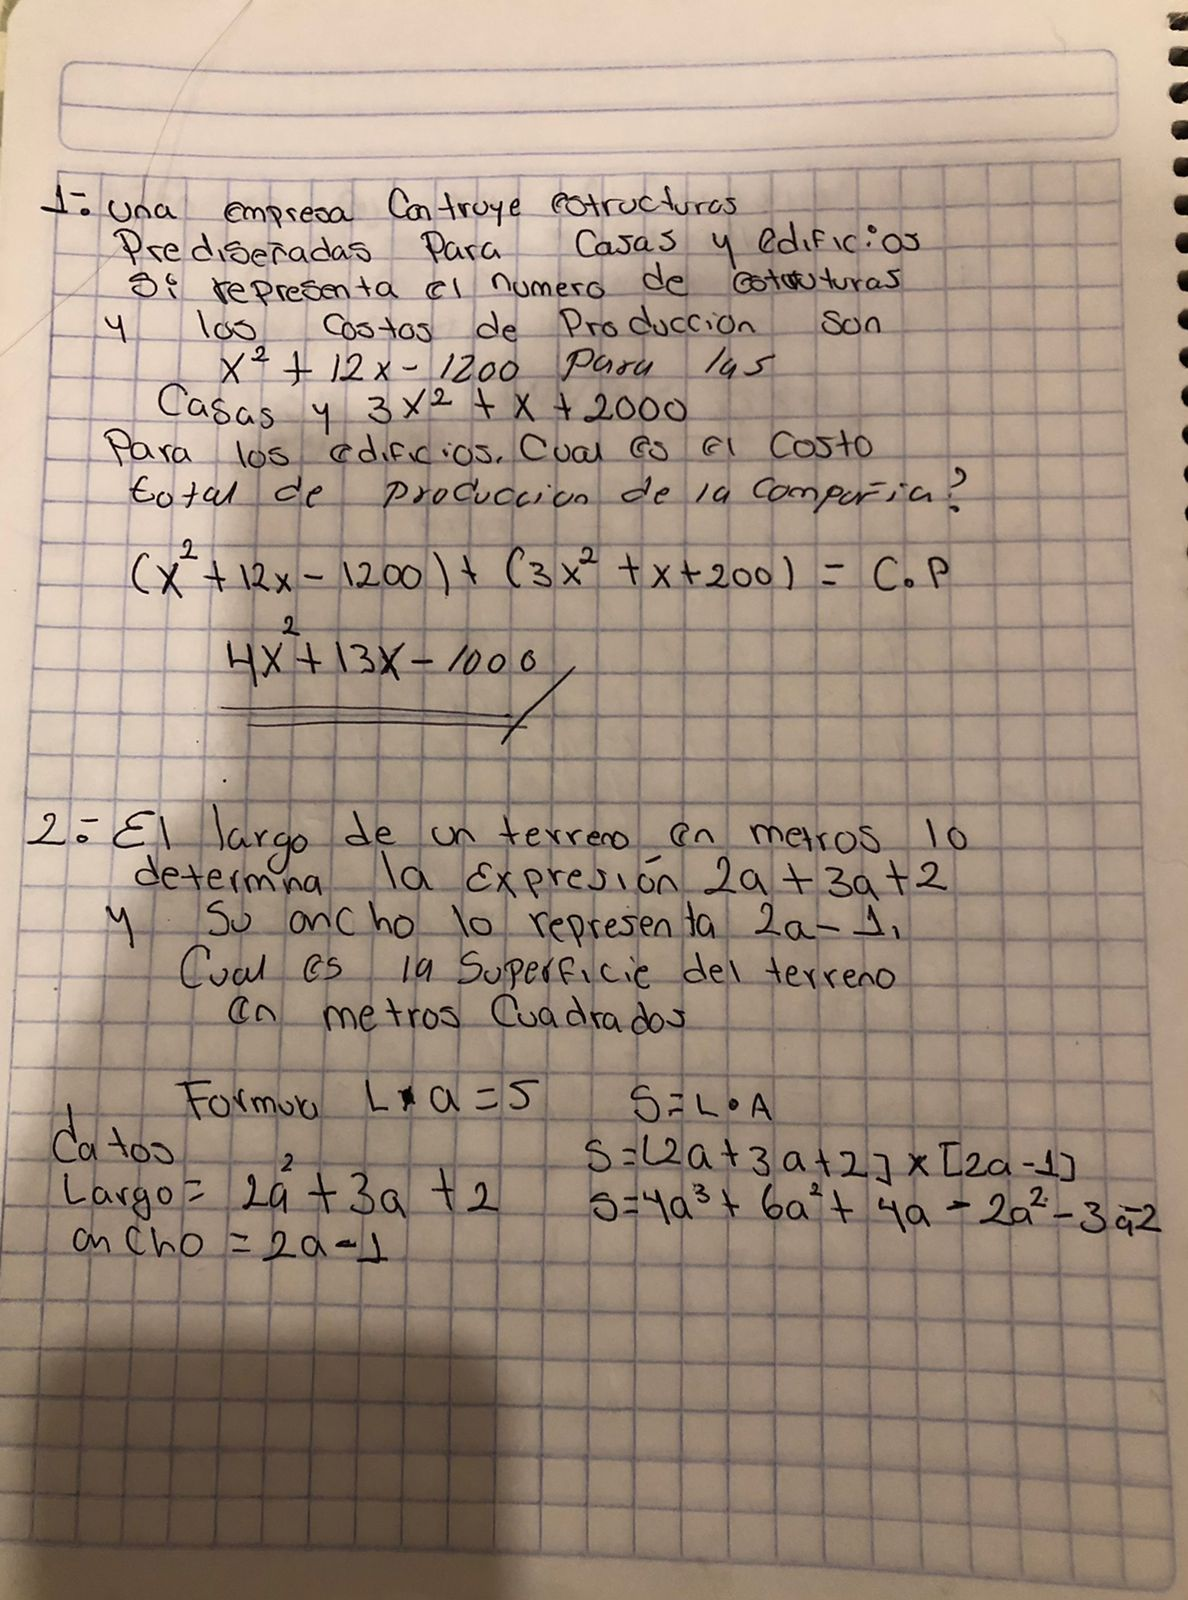 1=. una empresa Contruye estructuras
Prediseñadas Para Casas y edificios
Si representa el numero de estruturas
y los Costos de Produccion Son
x² + 12x - 1200 para las
Casas y 3x² + x + 2000
Para los edificios. Cual es el Costo
total de produccion de la compañia?
(x² + 12x - 1200) + (3x² + x + 200) = C.P
4x² + 13x - 1000
2=. El largo de un terreno en metros lo
determina la Expresión 2a + 3a + 2
y Su ancho lo representa 2a - 1,
Cual es la Superficie del terreno
en metros Cuadrados
Formula L · a = S
S = L · A
datos
S = [2a + 3a + 2] x [2a - 1]
Largo = 2a² + 3a + 2
S = 4a³ + 6a² + 4a - 2a² - 3a - 2
ancho = 2a - 1